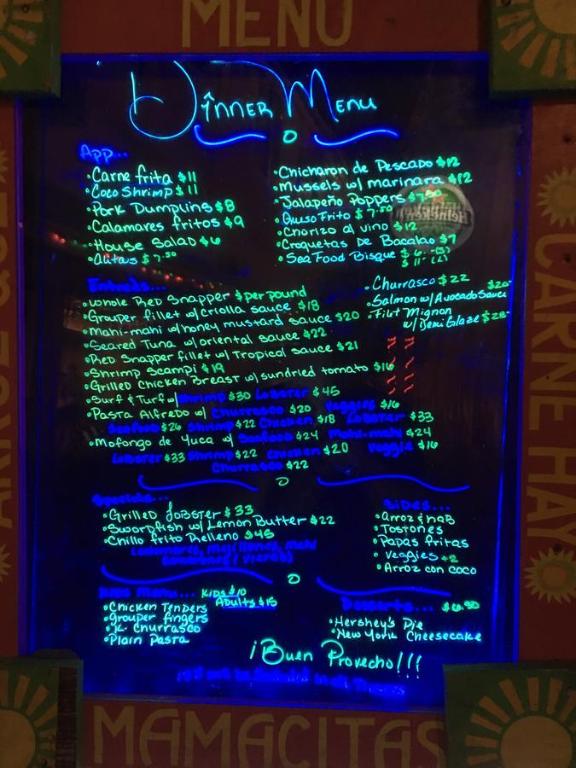 MENU
Dinner Menu
App...
• Carne frita $11
• Coco Shrimp $11
• Pork Dumplins $8
• Calamares fritos $9
• House Salad $6
• Alitas $7.50
• Chicharon de Pescado $12
• Mussels w/ marinara $12
• Jalapeño Poppers $7.50
• Queso Frito $7.50
• Chorizo al vino $12
• Croquetas De Bacalao $9
• Sea Food Bisque $6
Heineken
Entrees...
• Whole Red Snapper $ per pound
• Grouper fillet w/ Criolla sauce $18
• Mahi-mahi w/ honey mustard sauce $20
• Seared Tuna w/ oriental sauce $22
• Red Snapper fillet w/ Tropical sauce $21
• Shrimp Scampi $19
• Grilled Chicken Breast w/ sundried tomato $16
• Surf & Turf w/ Shrimp $30 Lobster $45
• Pasta Alfredo w/ Churrasco $20 Veggies $16
Seafood $26 Shrimp $22 Chicken $18 Lobster $33
• Mofongo de Yuca w/ Seafood $24 Mahi-mahi $24
Lobster $33 Shrimp $22 Chicken $20 Veggie $16
Churrasco $22
• Churrasco $22
• Salmon w/ Avocado Sauce $20
• Filet Mignon
w/ Demi Glaze $28
Specials...
• Grilled Lobster $33
• Swordfish w/ Lemon Butter $22
• Chillo frito Relleno $45
Sides...
• Arroz & hab
• Tostones
• Papas fritas
• Veggies +2
• Arroz con coco
Kids Menu... Kids $10
Adults $15
• Chicken Tenders
• Grouper fingers
• K. Churrasco
• Plain Pasta
Desserts... $6.50
• Hershey's Pie
• New York Cheesecake
¡Buen Provecho!!!
CARNE HAY
MAMACITAS